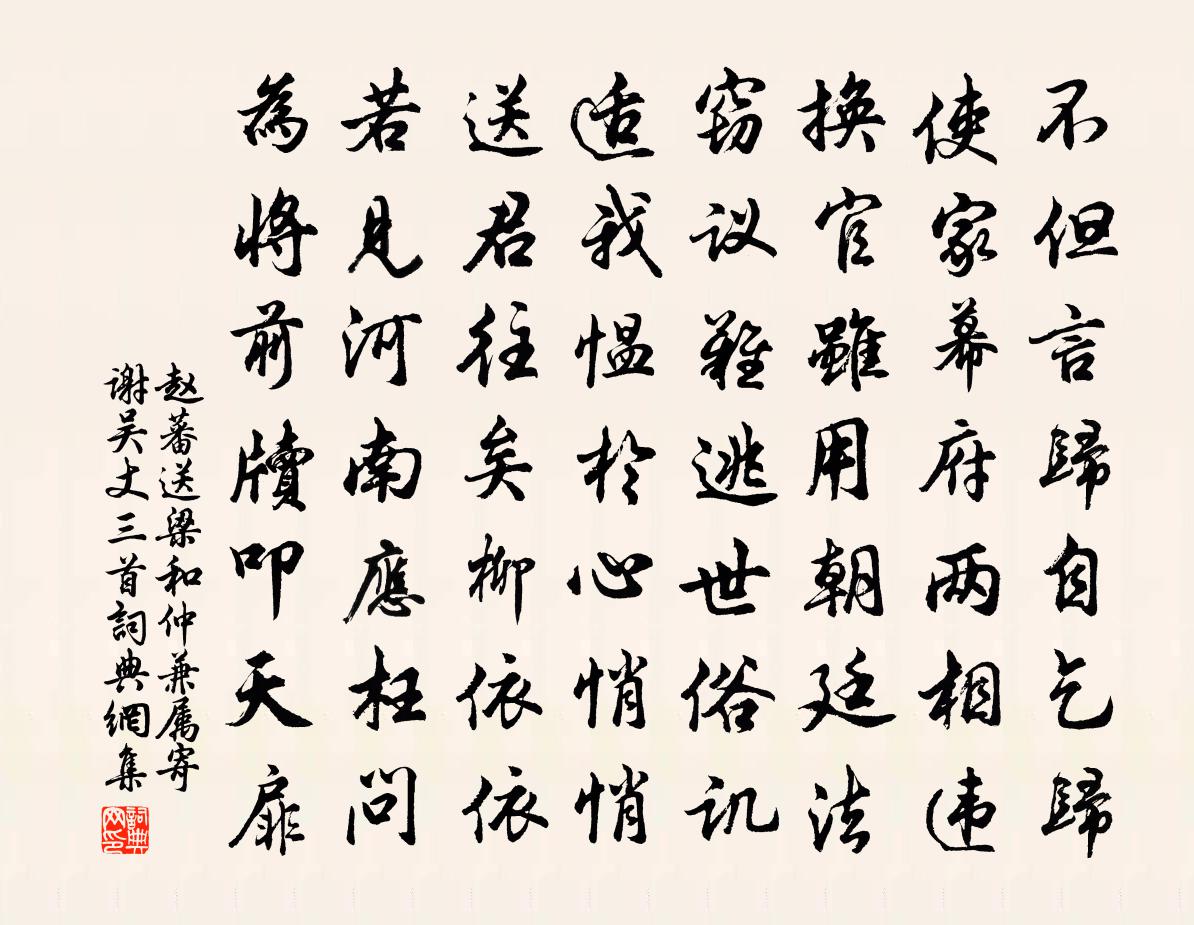 不但言歸自乞歸
使家幕府两相违
换官雖用朝廷法
窃议難逃世俗讥
适我愠於心悄悄
送君往矣柳依依
若見河南應枉問
為將前牘叩天扉
赵蕃送梁和仲兼属寄
谢吴丈三首詞典網集
詞典
网印